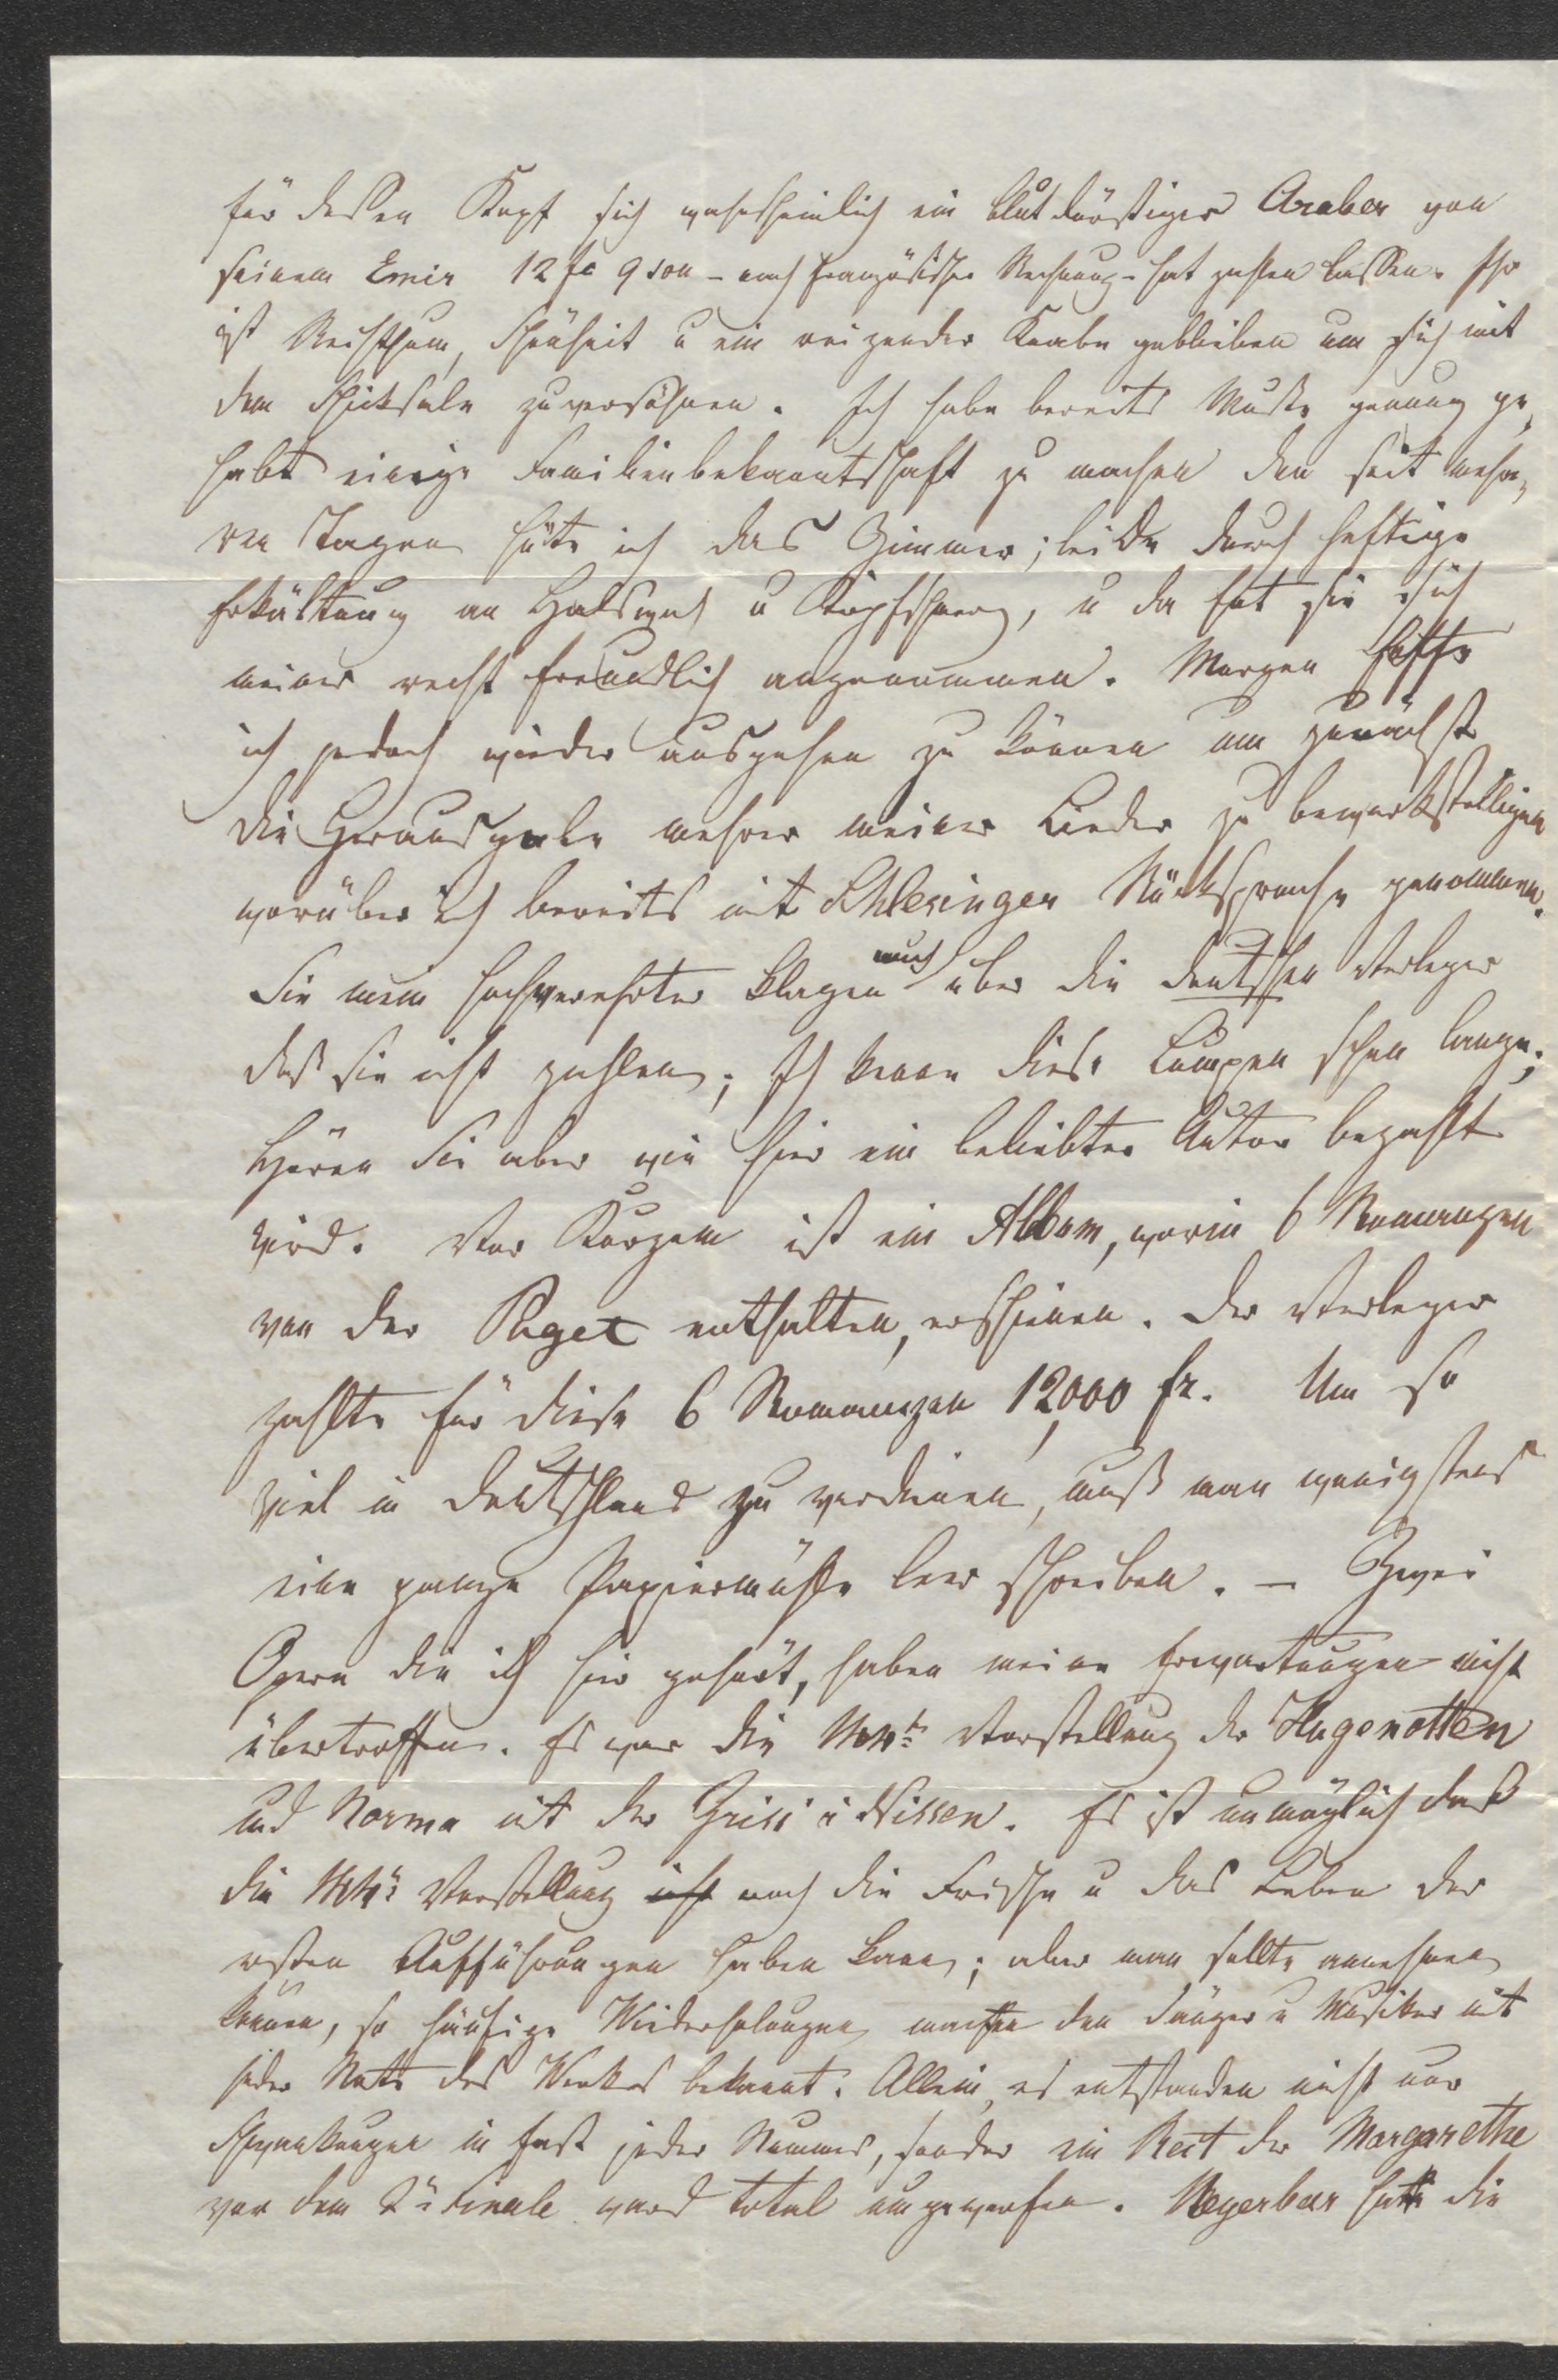 für dessen Kopf sich wahrscheinlich ein blutdürstiger Araber von
seinem Emir 12 fc 9 sou – nach französischer Rechnung – hat zahlen lassen. Ihr
ist Reichthum, Schönheit u ein reizender Knabe geblieben um sich mit
dem Schicksale zu versöhnen. Ich habe bereits Muße genung ge„
habt einige Familienbekanntschaft zu machen den seit mehre„
ren Tagen hüte ich das Zimmer; leide durch heftige
Erkältung an Halsweh u Kopfschmerz, u da hat sie sich
meiner recht freundlich angenommen. Morgen hoffe
ich jedoch wieder ausgehen zu können um zunächst
die Herausgabe mehrer meiner Lieder zu bewerkstelligen
worüber ich bereits mit Schlesinger Rücksprache genommen.
Sie mein hochverehrter klagen auch über die deutschen Verleger
daß sie nicht zahlen; Ich kenne diese Lumpen schon lange;
Hören Sie aber wie hier ein beliebter Autor bezahlt
wird. Vor Kurzem ist ein Album, worin 6 Romanzen
von der Puget enthalten, erschienen. Der Verleger
zahlte für diese 6 Romanzen 12,000 fr. Um so
viel in Deutschland zu verdienen, muß man wenigstens
eine ganze Papiermühle leer schreiben. – Zwei
Opern die ich hier gehört, haben meine Erwartungen nicht
übertroffen. Es war die Vorstellung der Hugenotten
und Norma mit der Grisi u Nissen. Es ist unmöglich daß
die Vorstellung nicht noch die Frische u das Leben der
ersten Aufführungen haben kann; aber man sollte annehmen
können, so häufige Wiederholungen machten den Sänger u Musiker mit
jeder Note des Werkes bekannt. Allein, es entstanden nicht nur
Schwankungen in fast jeder Nummer, sonder ein Recit der Margarethe
vor dem 2n Finale ward total umgeworfen. Meyerbeer hatte die